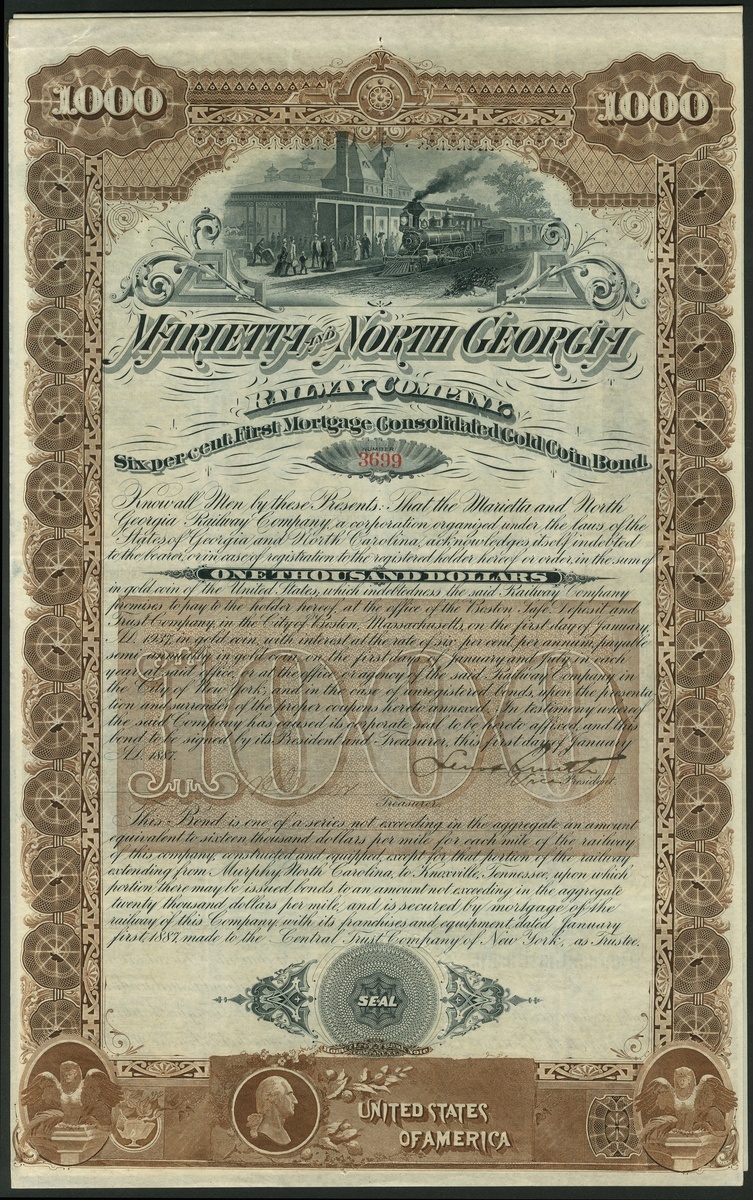 1000 1000
MARIETTA AND NORTH GEORGIA
RAILWAY COMPANY.
Six per cent. First Mortgage Consolidated Gold Coin Bond.
NUMBER
3699
Know all Men by these Presents: That the Marietta and North
Georgia Railway Company, a corporation organized under the laws of the
States of Georgia and North Carolina, acknowledges itself indebted
to the bearer, or in case of registration to the registered holder hereof or order, in the sum of
ONE THOUSAND DOLLARS
in gold coin of the United States, which indebtedness the said Railway Company
promises to pay to the holder hereof, at the office of the Boston Safe Deposit and
Trust Company, in the City of Boston, Massachusetts, on the first day of January,
A.D. 1937, in gold coin, with interest at the rate of six per cent. per annum, payable
semi annually in gold coin on the first days of January and July, in each
year at said office, or at the office or agency of the said Railway Company in
the City of New York; and in the case of unregistered bonds, upon the presenta-
tion and surrender of the proper coupons hereto annexed. In testimony whereof
the said Company has caused its corporate seal to be hereto affixed, and this
bond to be signed by its President and Treasurer, this first day of January
A.D. 1887.
1000
Vice President.
Treasurer.
This Bond is one of a series not exceeding in the aggregate an amount
equivalent to sixteen thousand dollars per mile for each mile of the railway
of this company, constructed and equipped, except for that portion of the railway
extending from Murphy, North Carolina, to Knoxville, Tennessee, upon which
portion there may be issued bonds to an amount not exceeding in the aggregate
twenty thousand dollars per mile, and is secured by mortgage of the
railway of this Company, with its franchises and equipment, dated January
first, 1887, made to the Central Trust Company of New York, as Trustee.
SEAL
UNITED STATES
OF AMERICA